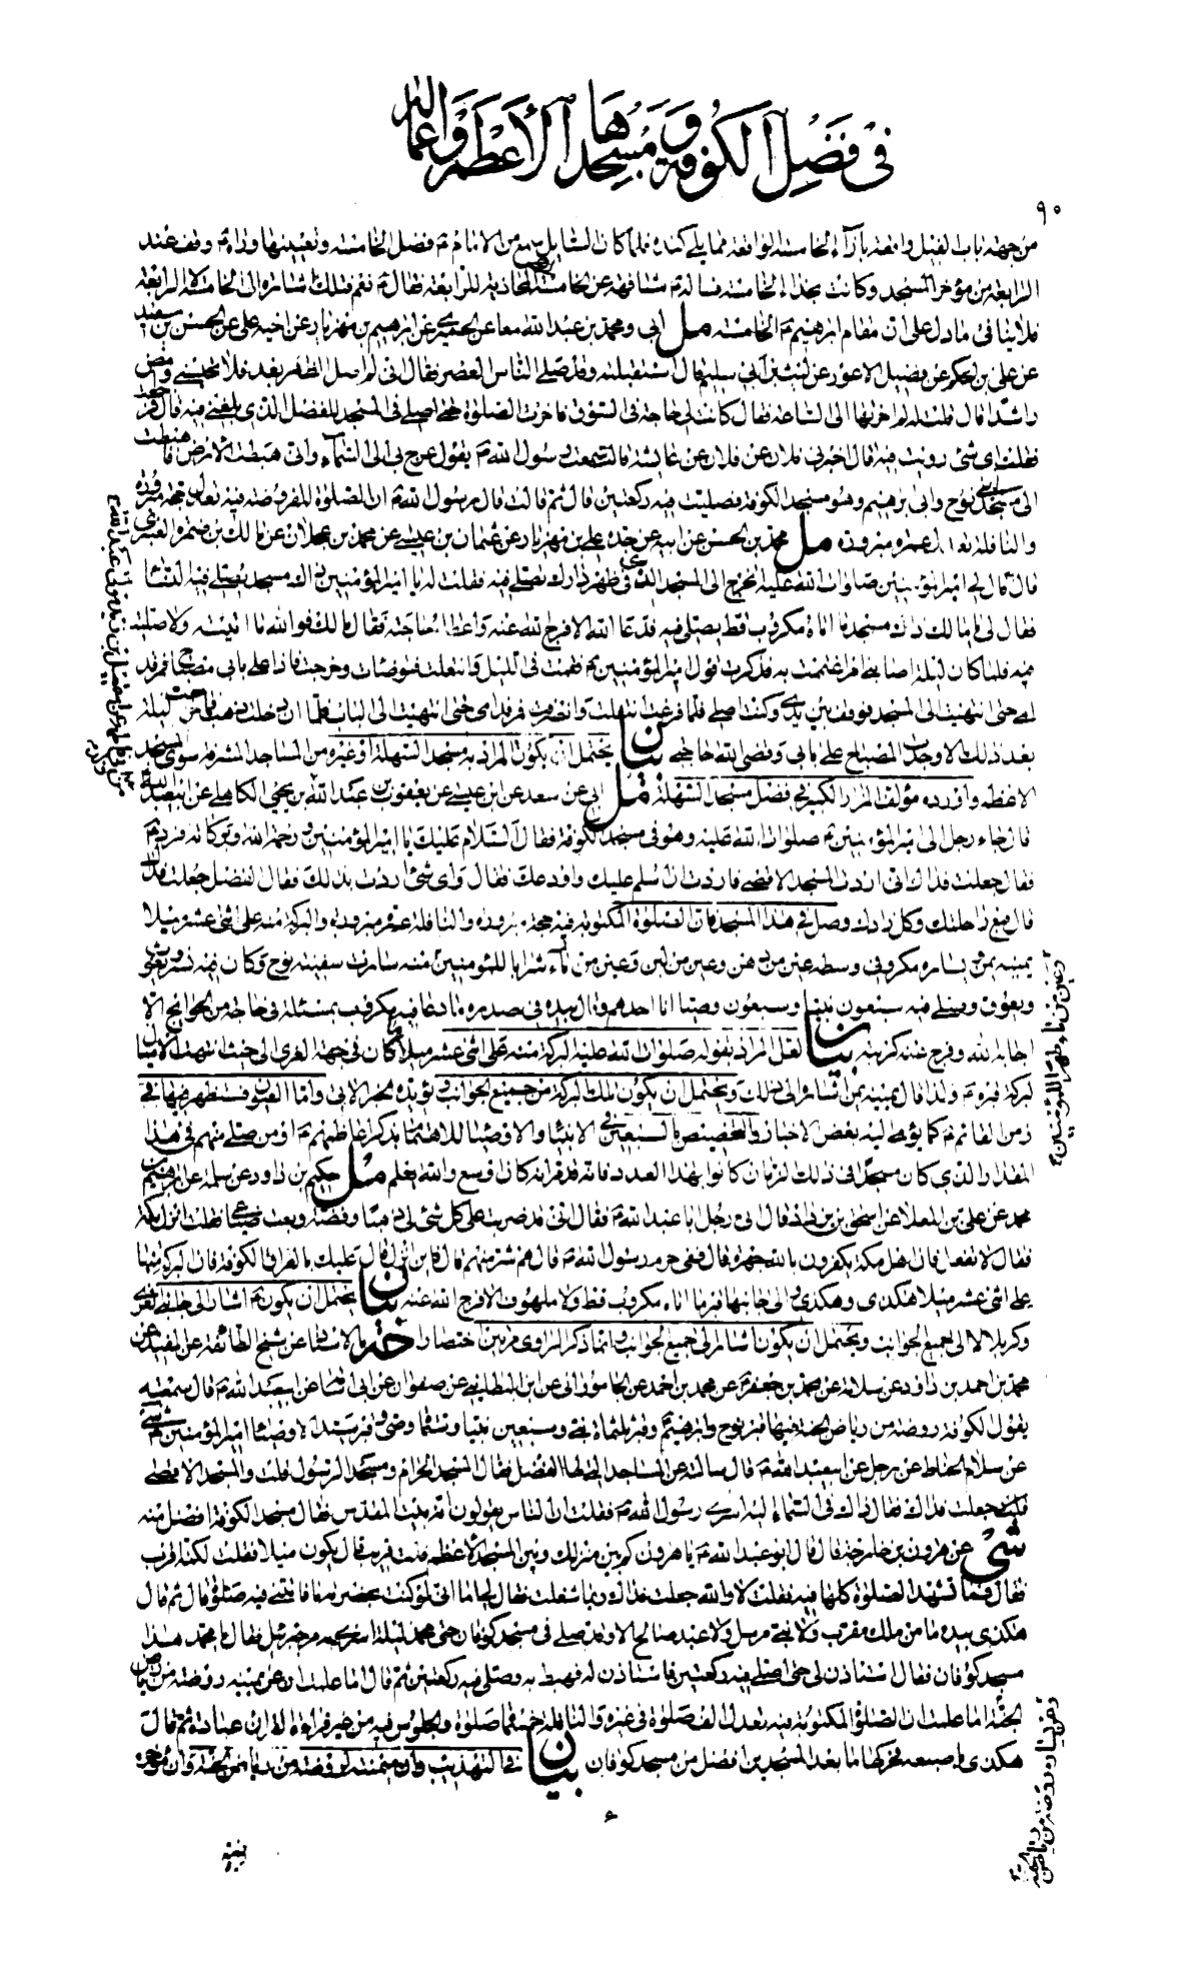 في فضل الكوفة ومسجدها الأعظم وأعماله
٩٠
من جهة باب الفيل واقعة بازاء الخامسة الواقعة مما يلي كندة فلما كان السائل سمع من الامام ع فضل الخامسة وتعيينها وراه ع وقف عند
الرابعة من مؤخر المسجد وكانت بحذاء الخامسة فساله ع مشافهة عن الخامسة المحاذية للرابعة فقال ع نعم فتلك اشارة الى الخامسة لا الرابعة
فلا ينافي ما دل على ان مقام ابرهيم ع الخامسة مل ابي ومحمد بن عبد الله معا عن الحميري عن ابرهيم بن مهزيار عن اخيه علي عن الحسن بن سعيد
عن علي بن الحكم عن فضيل الاعور عن ليث بن ابي سليم قال استقبلته وقد صلى الناس العصر فقال اني لم اصل الظهر بعد فلا تحبسني وامض
راشدا قال قلت له لم اخرتها الى الساعة فقال كانت لي حاجة في السوق فاخرت الصلوة حتى اصلي في المسجد للفضل الذي بلغني فيه قال
فقلت اي شيء رويت فيه قال اخبرني فلان عن فلان عن عائشة قالت سمعت رسول الله ص يقول عرج بي الى السماء واني هبطت الارض فاهبطت
الى مسجد ابي نوح وابي ابرهيم وهو مسجد الكوفة فصليت فيه ركعتين قال ثم قالت قال رسول الله ص ان الصلوة المفروضة فيه تعدل حجة مبرورة
والنافلة تعدل عمرة مبرورة مل محمد بن الحسن عن ابيه عن جده علي بن مهزيار عن عثمان بن عيسى عن محمد بن عجلان عن مالك بن ضمرة العنبري
قال قال لي امير المؤمنين صلوات الله عليه اتخرج الى المسجد الذي في ظهر دارك تصلي فيه فقلت له يا امير المؤمنين ذاك مسجد تصلي فيه النساء
فقال لي يا مالك ذاك مسجد ما اتاه مكروب قط يصلي فيه فدعا الله الا فرج الله عنه واعطاه حاجته فقال مالك فوالله ما اتيته ولا صليت
فيه فلما كان ليلة اصابني امر اغتممت به فذكرت قول امير المؤمنين ع فقمت في الليل وانتعلت فتوضات وخرجت فاذا على بابي مصباح فمر قد
امي حتى انتهيت الى المسجد فوقف بين يدي وكنت اصلي فلما فرغت انتعلت وانصرفت فمر قدامي حتى انتهيت الى الباب فلما ان دخلت ذهب فما خرجت ليلة
بعد ذلك الا وجدت المصباح على بابي وقضى الله حاجتي بيان يحتمل ان يكون المراد به مسجد السهلة او غيره من المساجد المشرفة سوى المسجد
الاعظم واورده مؤلف المزار الكبير في فضل مسجد السهلة مل ابي عن سعد عن ابن عيسى عن يعقوب بن عبد الله بن يحيى الكاهلي عن ابي عبد الله ع
قال جاء رجل الى امير المؤمنين صلوات الله عليه وهو في مسجد الكوفة فقال السلام عليك يا امير المؤمنين ورحمة الله وبركاته فرد ع
فقال جعلت فداك اني اردت المسجد الاقصى فاردت ان اسلم عليك واودعك فقال واي شيء اردت بذلك فقال الفضل جعلت فداك
قال فبع راحلتك وكل زادك وصل في هذا المسجد فان الصلوة المكتوبة فيه حجة مبرورة والنافلة عمرة مبرورة والبركة منه على اثنى عشر ميلا
يمينه يمن ويساره مكر وفي وسطه عين من دهن وعين من لبن وعين من ماء شرابا للمؤمنين منه سارت سفينة نوح وكان فيه نسر ويغوث
ويعوق وصلى فيه سبعون نبيا وسبعون وصيا انا احدهم وقال بيده في صدره ما دعا فيه مكروب بمسئلة في حاجة من الحوائج الا
اجابه الله وفرج عنه كربته بيان لعل المراد بقوله صلوات الله عليه البركة منه على اثنى عشر ميلا ما كان في جهة الغري الى حيث انتهت الاميال
لبركة قبره ع ولذا قال يمينه يمن اشارة الى ذلك ويحتمل ان يكون تلك البركة من جميع الجوانب ويؤيده الخبر الاتي واما العيون فستظهر فيها في
زمن القائم ع كما يؤمي اليه بعض الاخبار والتخصيص بالسبعين في الانبيا والاوصيا للاهتمام بذكر اعاظمهم ع او من صلى منهم في هذا
المقدار الذي كان مسجدا في ذلك الزمان كانوا بهذا العدد فانه قد مر انه كان اوسع والله يعلم مل حكيم بن داود عن سلمة عن ابرهيم بن
محمد عن علي بن المعلا عن اسحق بن يزداد قال اتى رجل ابا عبد الله ع فقال اني قد ضربت على كل شيء لي ذهبا وفضة وبعت ضياعي فقلت انزل مكة
فقال لا تفعل فان اهل مكة يكفرون بالله جهرة قال ففي حرم رسول الله ص قال هم شر منهم قال فاين انزل قال عليك بالعراق الكوفة فان البركة منها
على اثنى عشر ميلا هكذى وهكذى والى جانبها قبر ما اتاه مكروب قط ولا ملهوف الا فرج الله عنه بيان يحتمل ان يكون ع اشار الى جانب الغري
وكربلا لا الى جميع الجوانب ويحتمل ان يكون اشار الى جميع الجوانب وانما ذكر الراوي مرتين اختصارا حة بالاسناد عن شيخ الطائفة عن المفيد عن
محمد بن احمد بن داود عن سلامة عن محمد بن جعفر ع عن محمد بن احمد عن الجاموراني عن ابن البطائني عن صفوان عن ابي اسامة عن ابي عبد الله ع قال سمعته
يقول الكوفة روضة من رياض الجنة فيها قبر نوح وابرهيم ع وقبر ثلثمائة نبي وسبعين نبيا وستمائة وصي وقبر سيد الاوصيا امير المؤمنين ع شي
عن سلام الحناط عن رجل عن ابي عبد الله ع قال سالته عن المساجد التي لها الفضل فقال المسجد الحرام ومسجد الرسول قلت والمسجد الاقصى
جعلت فداك فقال ذاك في السماء اليه اسري رسول الله ص فقلت ان الناس يقولون انه بيت المقدس فقال مسجد الكوفة افضل منه
شي عن هرون بن خارجة قال قال ابو عبد الله ع يا هرون كم بين منزلك وبين المسجد الاعظم فقلت قريب قال يكون ميلا فقلت لكنه اقرب
فقال فما تشهد الصلوة كلها فيه فقلت لا والله جعلت فداك ربما شغلت فقال لي اما اني لو كنت بحضرته ما فاتتني فيه صلوة قال ثم قال
هكذى بيده ما من ملك مقرب ولا نبي مرسل ولا عبد صالح الا وقد صلى في مسجد كوفان حتى محمد ليلة اسري به مر به جبرئيل فقال يا محمد هذا
مسجد كوفان فقال استاذن لي حتى اصلي فيه ركعتين فاستاذن له فهبط به وصلى فيه ركعتين ثم قال اما علمت ان عن يمينه روضة من رياض
الجنة اما علمت ان الصلوة المكتوبة فيه تعدل الف صلوة في غيره والنافلة خمسمائة صلوة والجلوس فيه من غير قراءة القران عبادة ثم قال
هكذى باصبعه فحركها ما بعد المسجدين افضل من مسجد كوفان بيان في التهذيب وان ميمنته لروضة من رياض الجنة وان مؤخره
وعين من ماء طهر للمؤمنين
وعن يساره روضة من رياض الجنة